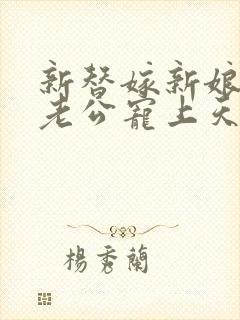 新替嫁新娘
老公寵上天
楊秀蘭